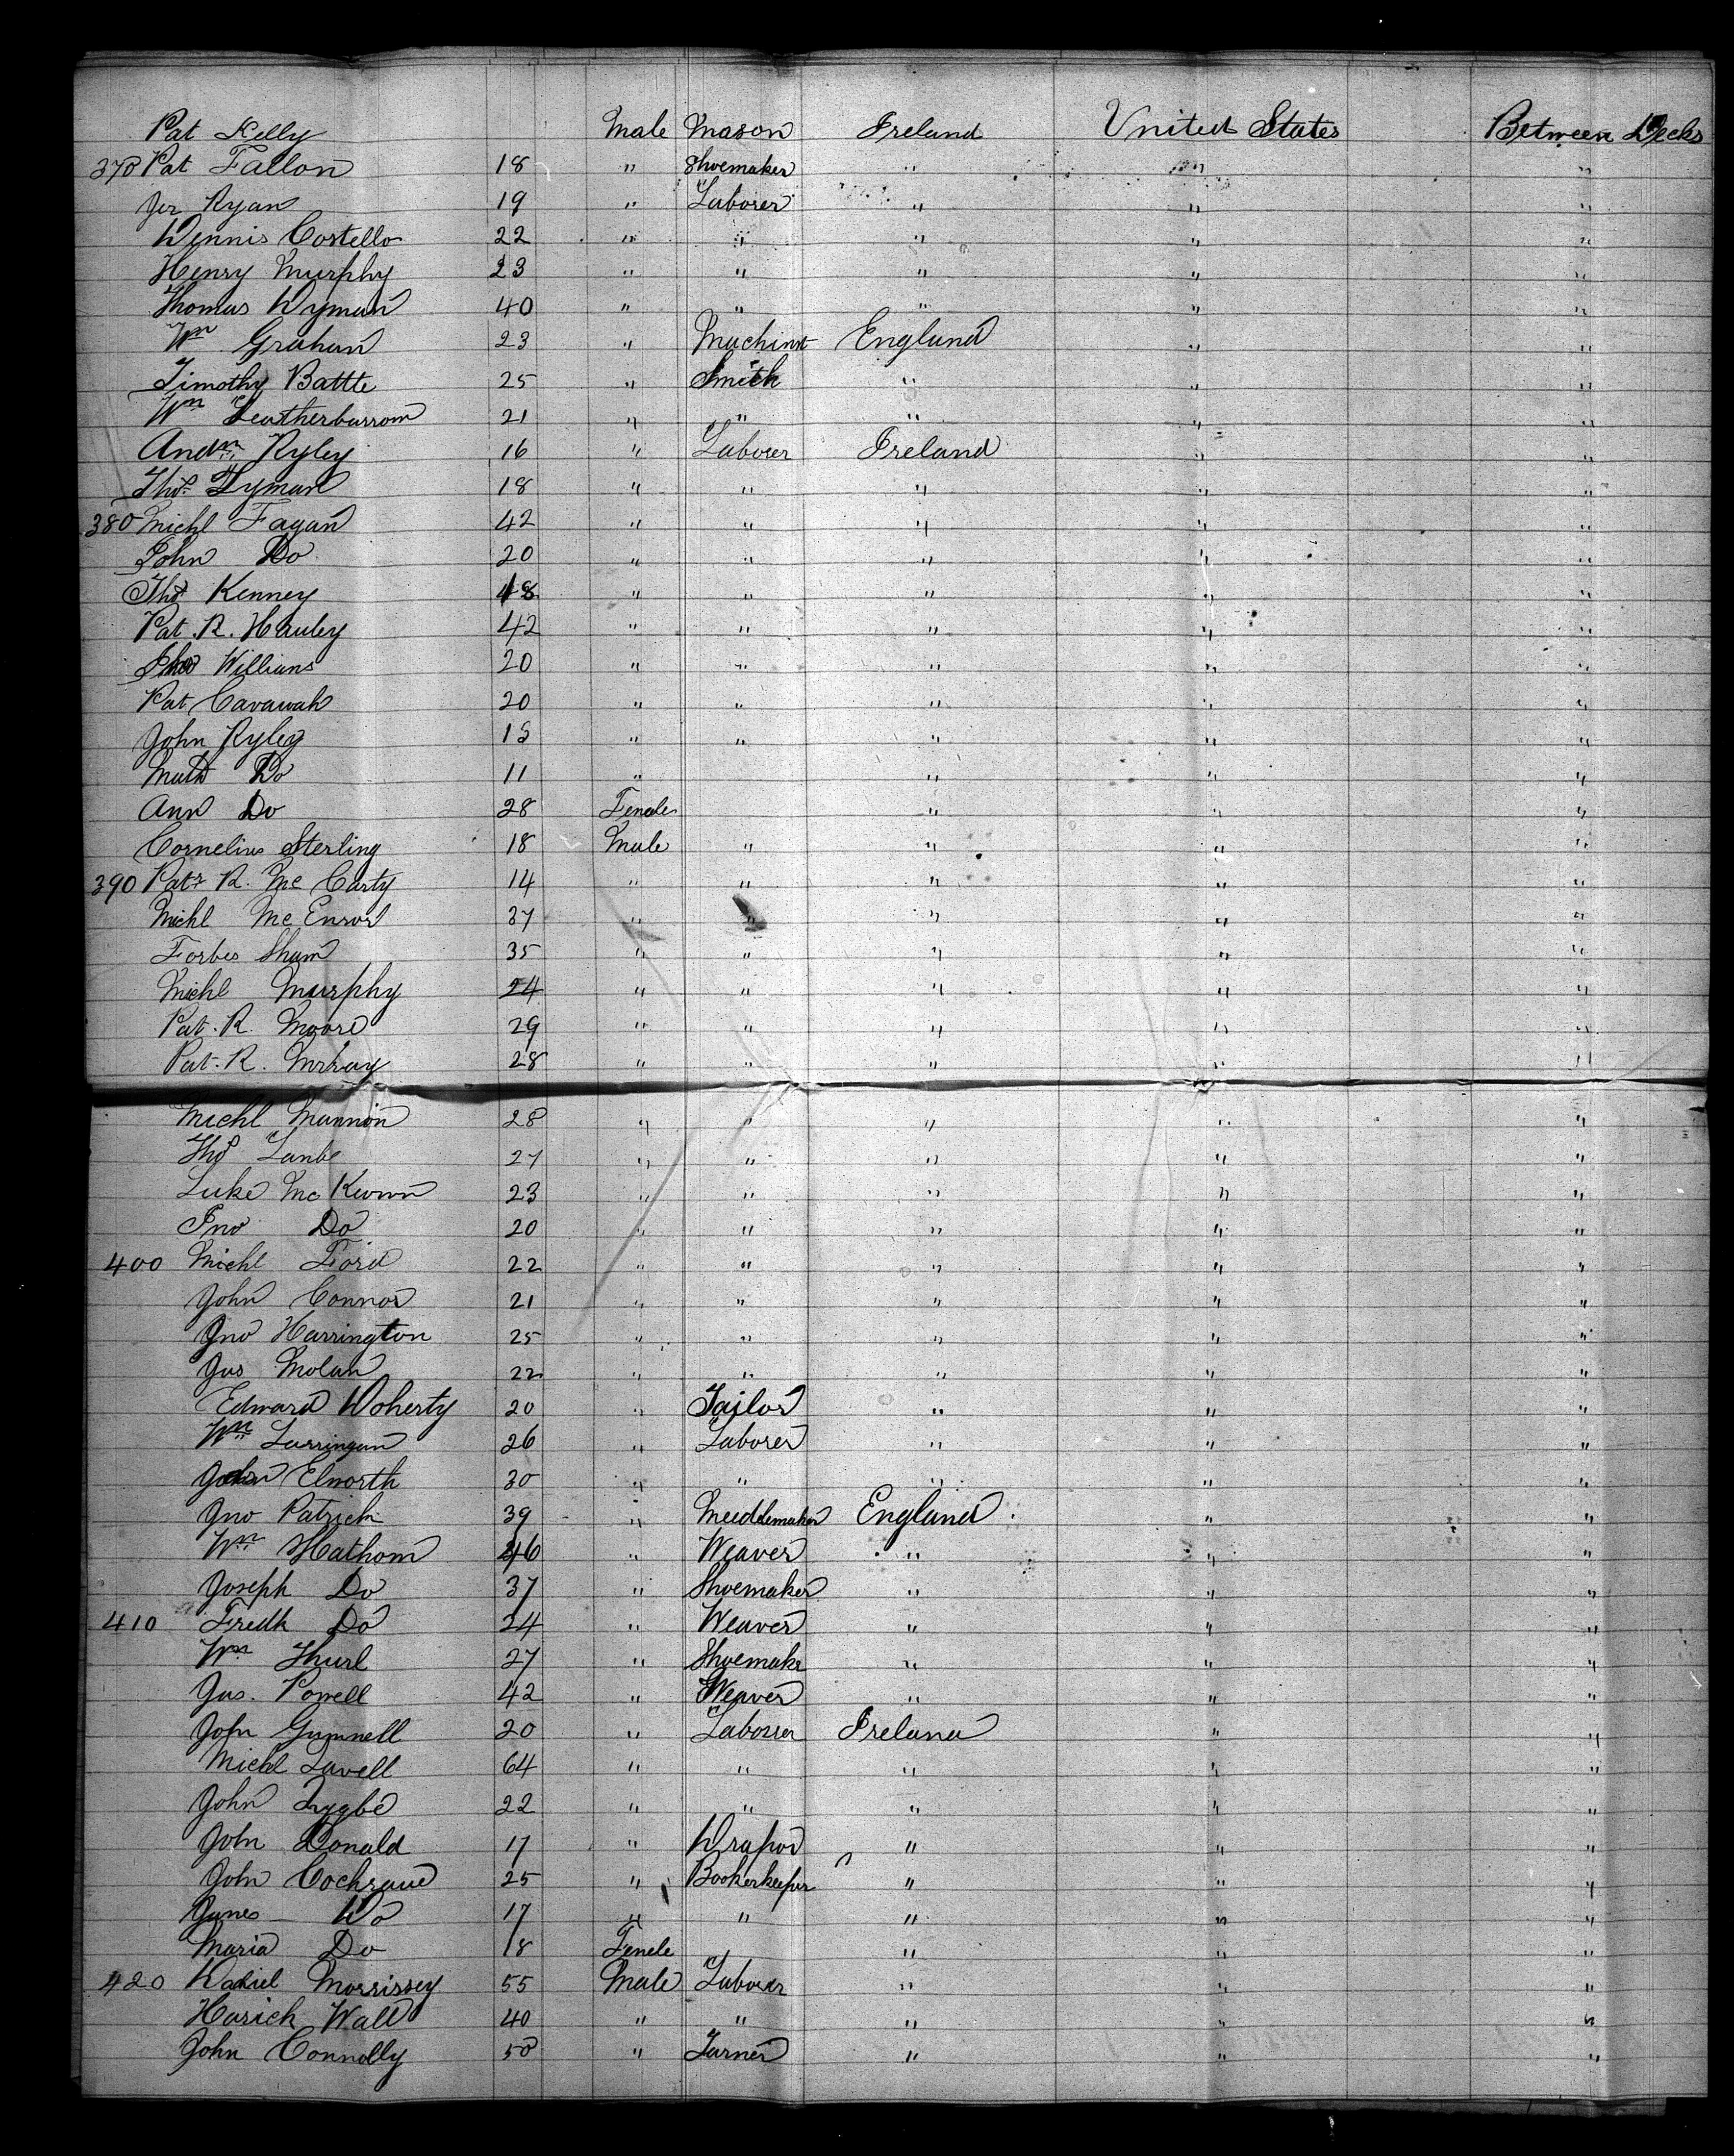 Pat Kelly Male Mason Ireland United States Between Decks
370 Pat Fallon 18 " Shoemaker " " "
Jer Ryan 19 " Laborer " " "
Dennis Costello 22 " " " " "
Henry Murphy 23 " " " " "
Thomas Dyman 40 " " " " "
Wm Graham 23 " Machinst England " "
Timothy Battte 25 " Smith " " "
Wm Leatherbarrow 21 " " " " "
Andw Ryley 16 " Laborer Ireland " "
Thos Lyman 18 " " " " "
380 Michl Fagan 42 " " " " "
John Do 20 " " " " "
Thos Kenney 48 " " " " "
Pat. R. Hauley 42 " " " " "
Williams 20 " " " " "
Pat Cavawah 20 " " " " "
John Ryley 15 " " " " "
Do 11 " " " "
Ann Do 28 Female " " "
Cornelius Sterling 18 Male " " " "
390 Patr R. Mc Carty 14 " " " " "
Michl Mc Enrow 37 " " " " "
Forbes Sham 35 " " " " "
Michl Murphy 24 " " " " "
Pat. R. Moore 29 " " " " "
Pat. R. Murray 28 " " " " "
Michl Mannion 28 " " " " "
Thos Lambe 27 " " " " "
Luke Mc Keown 23 " " " " "
Jno Do 20 " " " " "
400 Michl Ford 22 " " " " "
John Connor 21 " " " " "
Jno Harrington 25 " " " " "
Jas Molan 22 " " " " "
Edward Doherty 20 " Tailor " " "
Wm Larringan 26 " Laborer " " "
John Elworth 30 " " " " "
Jno Patrick 39 " Needlemaker England " "
Wm Hathom 46 " Weaver " " "
Joseph Do 37 " Shoemaker " " "
410 Fredk Do 24 " Weaver " " "
Wm Thurl 27 " Shoemakr " " "
Jas. Powell 42 " Weaver " " "
John Gumnell 20 " Laborer Ireland " "
Michl Lavell 64 " " " " "
John 22 " " " " "
John Donald 17 " Drapor " " "
John Cochrane 25 " Bookerkeeper " " "
James Do 17 " " " " "
Maria Do 18 Femele " " "
420 Daniel Morrissey 55 Male Laborer " " "
Harick Wall 40 " " " " "
John Connolly 50 " Turner " " "